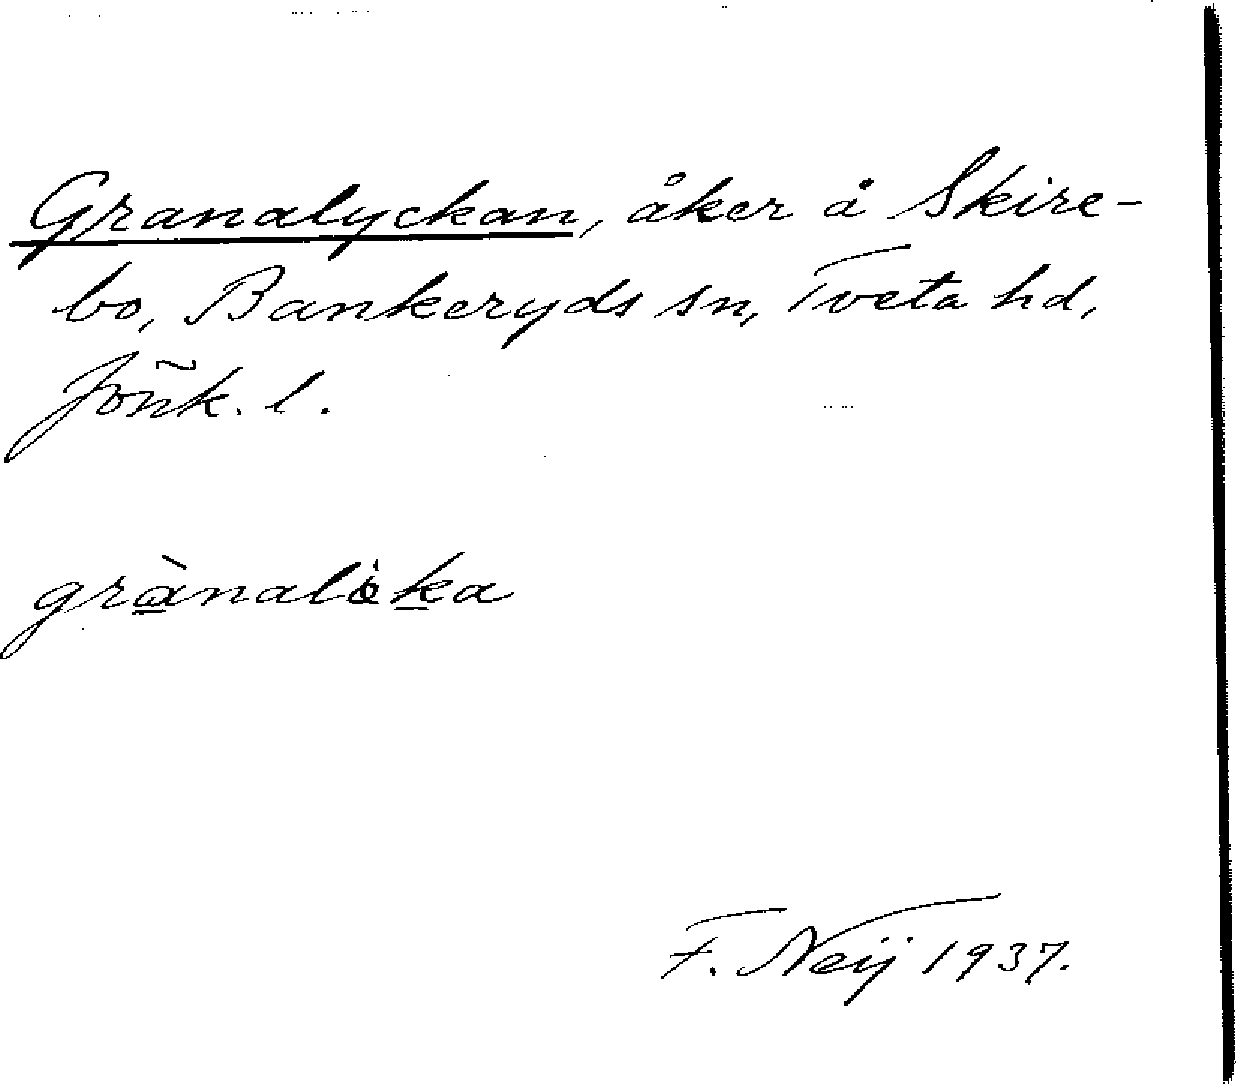 Granalyckan, åker å Skire-
bo, Bankeryds sn, Tveta hd,
Jönk. l.
grànalöka
F. Neij 1937.